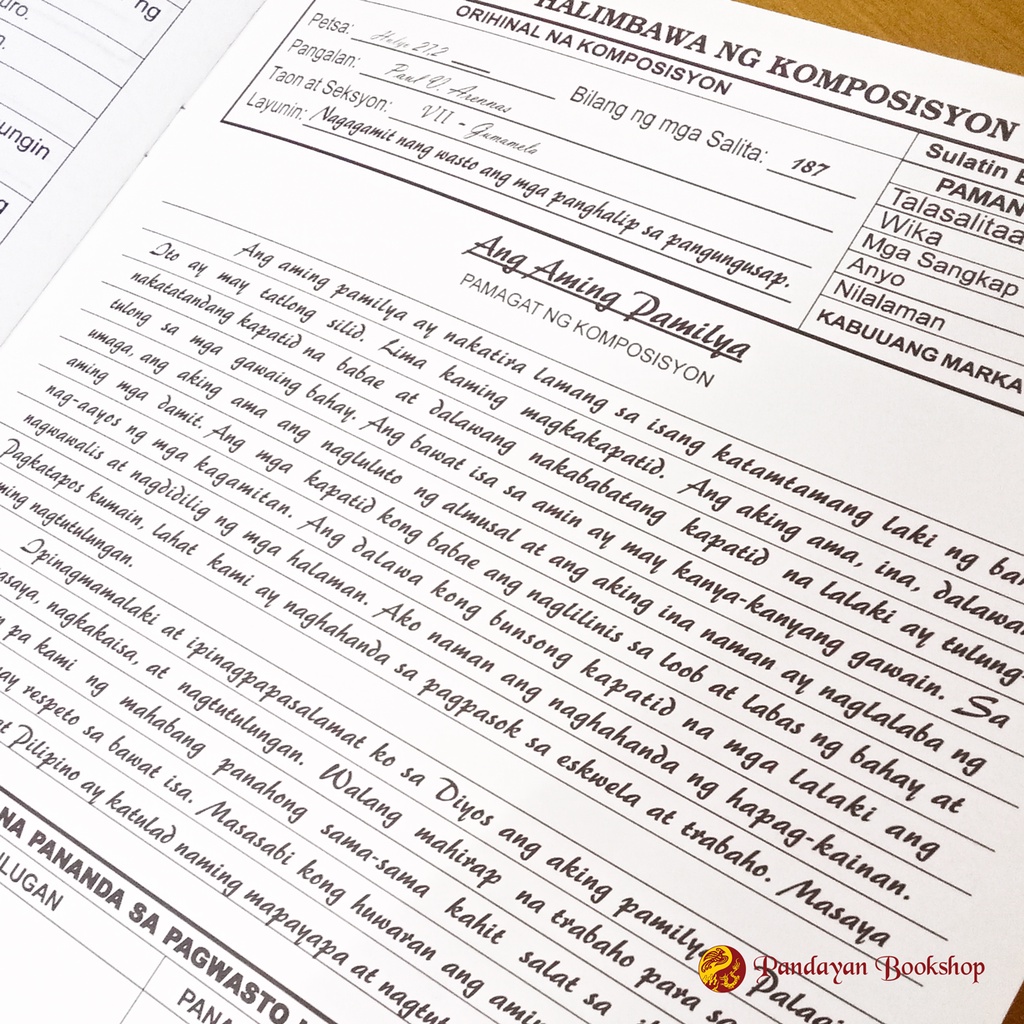 uro.
ng
ungin
g
HALIMBAWA NG KOMPOSISYON
ORIHINAL NA KOMPOSISYON
Petsa:
Pangalan: Paul V. Arennas
Bilang ng mga Salita: 187
Taon at Seksyon: VII - Gumamela
Layunin: Nagagamit nang wasto ang mga panghalip sa pangungusap.
Sulatin
PAMAN
Talasalitaa
Wika
Mga Sangkap
Anyo
Nilalaman
KABUUANG MARKA
Ang Aming Pamilya
PAMAGAT NG KOMPOSISYON
Ang aming pamilya ay nakatira lamang sa isang katamtamang laki ng
Ito ay may tatlong silid. Lima kaming magkakapatid. Ang aking ama, ina, dalawa
nakatatandang kapatid na babae at dalawang nakababatang kapatid na lalaki ay tulung-
tulong sa mga gawaing bahay. Ang bawat isa sa amin ay may kanya-kanyang gawain. Sa
umaga, ang aking ama ang nagluluto ng almusal at ang aking ina naman ay naglalaba ng
aming mga damit. Ang mga kapatid kong babae ang naglilinis sa loob at labas ng bahay at
nag-aayos ng mga kagamitan. Ang dalawa kong bunsong kapatid na mga lalaki ang
nagwawalis at nagdidilig ng mga halaman. Ako naman ang naghahanda ng hapag-kainan.
Pagkatapos kumain, lahat kami ay naghahanda sa pagpasok sa eskwela at trabaho. Masaya
ming nagtutulungan.
Ipinagmamalaki at ipinagpapasalamat ko sa Diyos ang aking pamilya. Palagi
asaya, nagkakaisa, at nagtutulungan. Walang mahirap na trabaho para sa
pa kami ng mahabang panahong sama-sama kahit salat sa
ay respeto sa bawat isa. Masasabi kong huwaran ang
Pilipino ay katulad naming mapayapa at
NA PANANDA SA PAGWASTO
LUGAN
PANA
Pandayan Bookshop